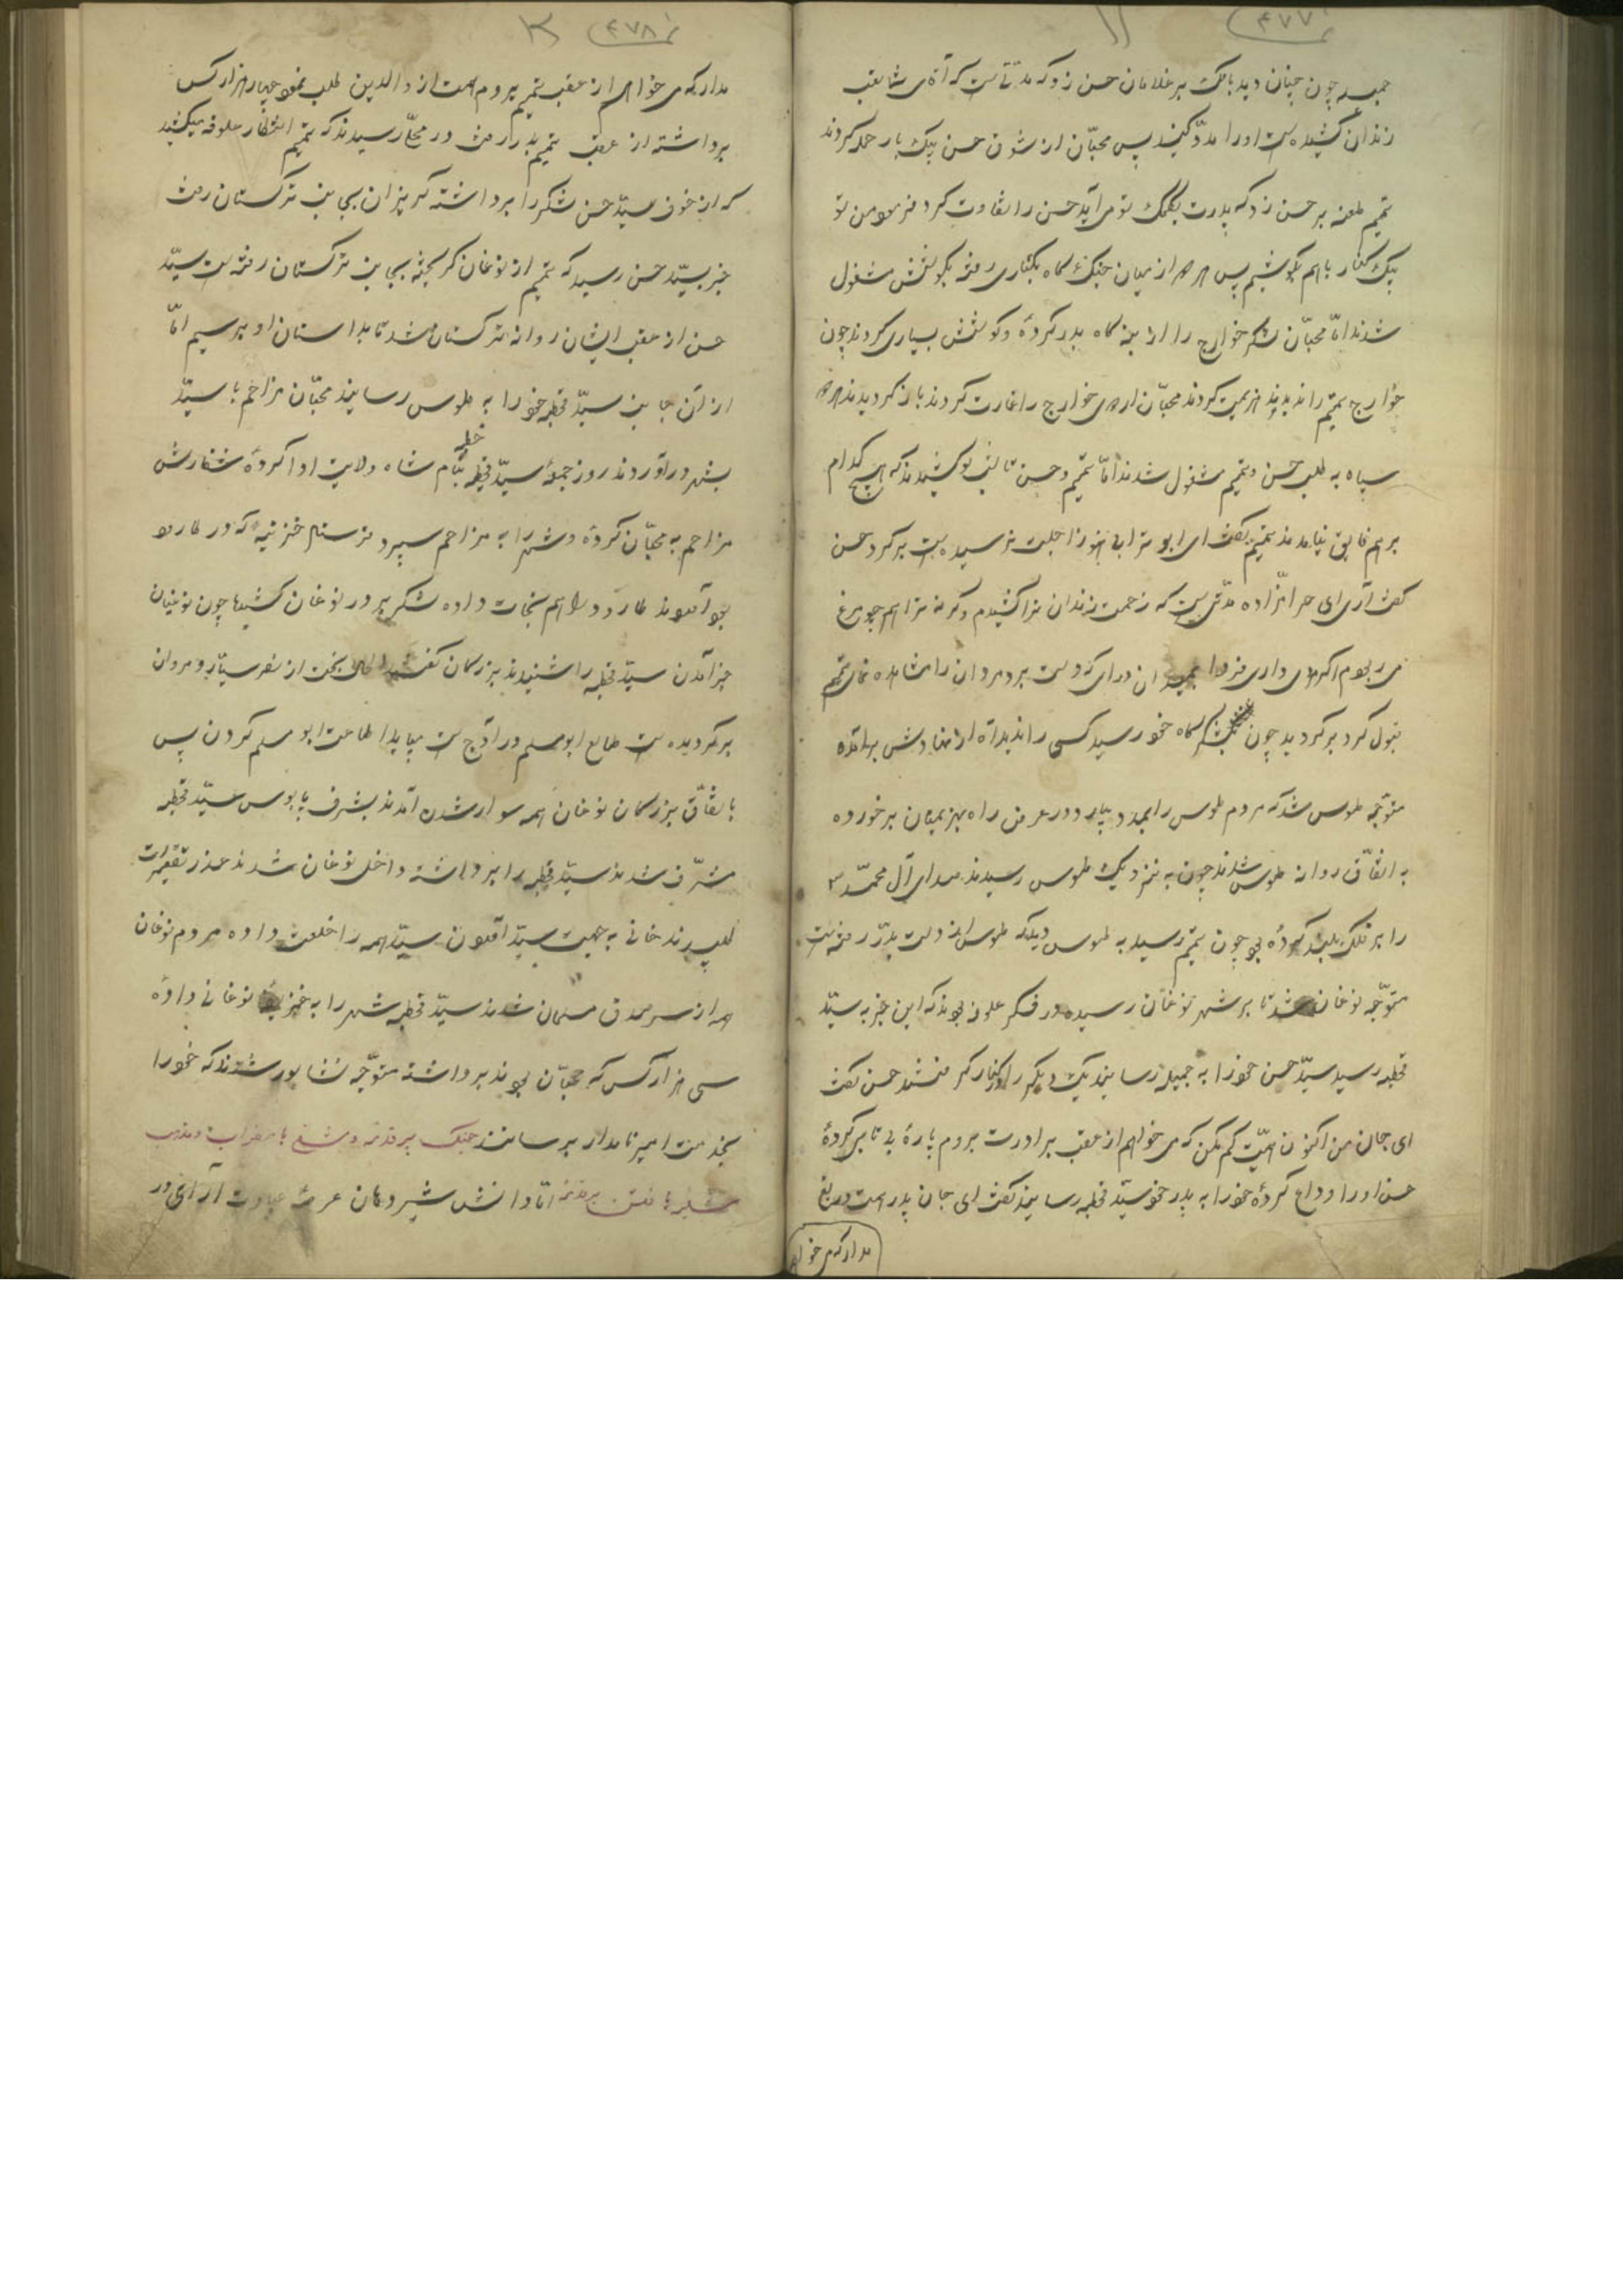 ۴۷۷
جمیله چون چنان دید بانک بر غلامان حسن زد که مدّتیست که آقای شما تعب
زندان کشیده است او را مدد کنید پس محبّان از شوق حسن بیک بار حمله کردند
تمیم طعنه بر حسن زد که پدرت بکمک تو می آید حسن را تفاوت کرد فرمود من تو
بیک کنار با هم بکوشیم پس هر دو از میان جنک گاه بکناری رفته بکوشش مشغول
شدند امّا محبّان لشکر خوارج را از بنه گاه بدر کرده و کوشش بسیاری کردند چون
خوارج تمیم را ندیدند هزیمت کردند محبّان اردوی خوارج را غارت کردند باز کردیدند هر دو
سپاه به طلب حسن و تمیم مشغول شدند امّا تمیم و حسن تا شب کوشیدند که هیچ کدام
بر هم فایق نیامدند تمیم گفت ای ابو ترابی هنوز اجلت نرسیده است بر کرد حسن
گفت آری ای حرامزاده مدّتیست که زحمت زندان ترا کشیدم و کر نه ترا هم چو مرغ
می ربودم اگر مردی داری فردا بمیدان درای که دست برد مردان را مشاهده نمای تمیم
قبول کرد بر کردید چون بلشکر گاه خود رسید کسی را ندید آه از نهادش بر آمده
متوجّه طوس شد که مردم طوس را بمدد بیارد در عرض راه بهزیمتیان بر خورده
به اتفّاق روانه طوس شدند چون به نزدیک طوس رسیدند صدای آل محمّد
را بر فلک بلند کرده بود چون تمیم رسید به طوس دید که طوس از دست بدر رفته است
متوّجه نوغان شد تا بر شهر نوغان رسیده در فکر علوفه بودند که این خبر به سیّد
قحطبه رسید سیّد حسن خود را به جمیله رسانید یک دیگر را در کنار گرفتند حسن گفت
ای جان من اکنون همّت کم مکن که می خواهم از عقب برادرت بروم پاره بی تابی کرده
حسن او را وداع کرده خود را به پدر خود سیّد قحطبه رسانید گفت ای جان پدر همت دریغ
مدار که می خواهم
۴۷۸
مدار که می خواهم از عقب تمیم بروم همت از والدین طلب نموده چهار هزار کس
برداشته از عقب تمیم بدر رفت در محلّی رسیدند که تمیم انتظار علوفه میکشید
که از خوف سیّد حسن لشکر را برداشته گریزان بجانب ترکستان رفت
خبر بسیّد حسن رسید که تمیم از نوغان کریخته بجانب ترکستان رفته است سیّد
حسن از عقب ایشان روانه ترکستان شد تا بداستان او برسیم امّا
از آن جانب سیّد قحطبه خود را به طوس رسانید محبّان مزاحم با سیّد
بشهر در آوردند روز جمعه سیّد قحطبه خطبه بنام شاه ولایت ادا کرده سفارش
مزاحم به محبّان کرده و شهر را به مزاحم سپرد خزینه که در
بود آمدند هم نجات داده لشکر بر در نوغان کشید امّا چون نوغنیان
خبر آمدن سیّد قحطبه را شنیدند بزرگان گفتند الحال بخت از نصر سیّار و مروان
بر گردیده است طالع ابو مسلم در اوج است میباید اطاعت ابو مسلم کردن پس
باتفّاق بزرکان نوغان همه سوار شدن آمدند بشرف پابوس سیّد قحطبه
مشرّف شدند سیّد قحطبه را برداشته داخل نوغان شدند عذر تقصیرات
طلبیدند خانی به جهت سیّد آقلون سیّد همه را خلعت داده مردم نوغان
همه از سر صدق مسلمان شدند سیّد قحطبه شهر را به نوغانی داده
سی هزار کس که محبّان بودند برداشته متوّجه نشابور شدند که خود را
بخدمت امیر نامدار برسانند جنک بر قدنه و شیخ با مضراب و مذهب
یافتن بر قدنه امّا دانش شیر دهان عرصه عبارت آرای در